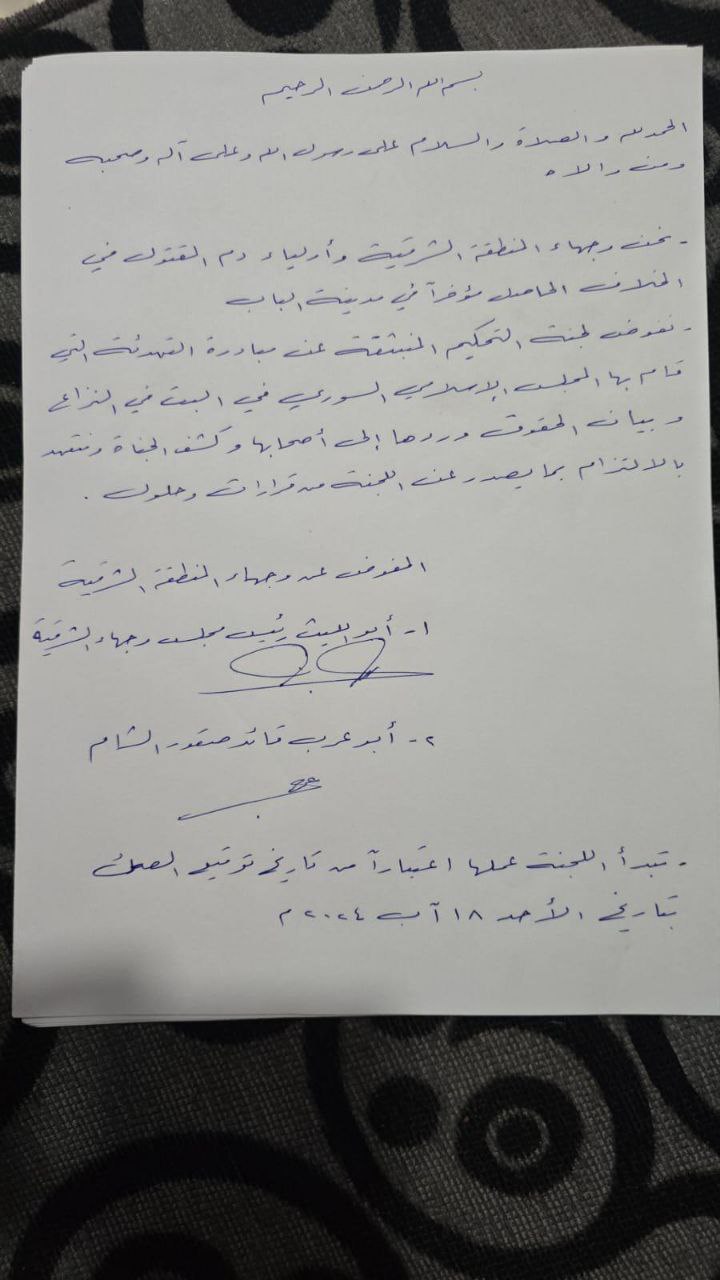 بسم الله الرحمن الرحيم
الحمد لله والصلاة والسلام على رسول الله وعلى آله وصحبه
ومن والاه
- نحن وجهاء المنطقة الشرقية وأولياء دم المقتول في
الخلاف الحاصل مؤخراً في مدينة الباب
- نفوض لجنة التحكيم المنبثقة عن مبادرة التهدئة التي
قام بها المجلس الإسلامي السوري في البت في النزاع
وبيان الحقوق وردها إلى أصحابها وكشف الجناة ونتعهد
بالالتزام بما يصدر عن اللجنة من قرارات وحلول .
المفوض عن وجهاء المنطقة الشرقية
١- أبو الليث رئيس مجلس وجهاء الشرقية
٢- أبو عرب قائد صقور الشام
- تبدأ اللجنة عملها اعتباراً من تاريخ توقيع الصك
بتاريخ الأحد ١٨ آب ٢٠٢٤ م